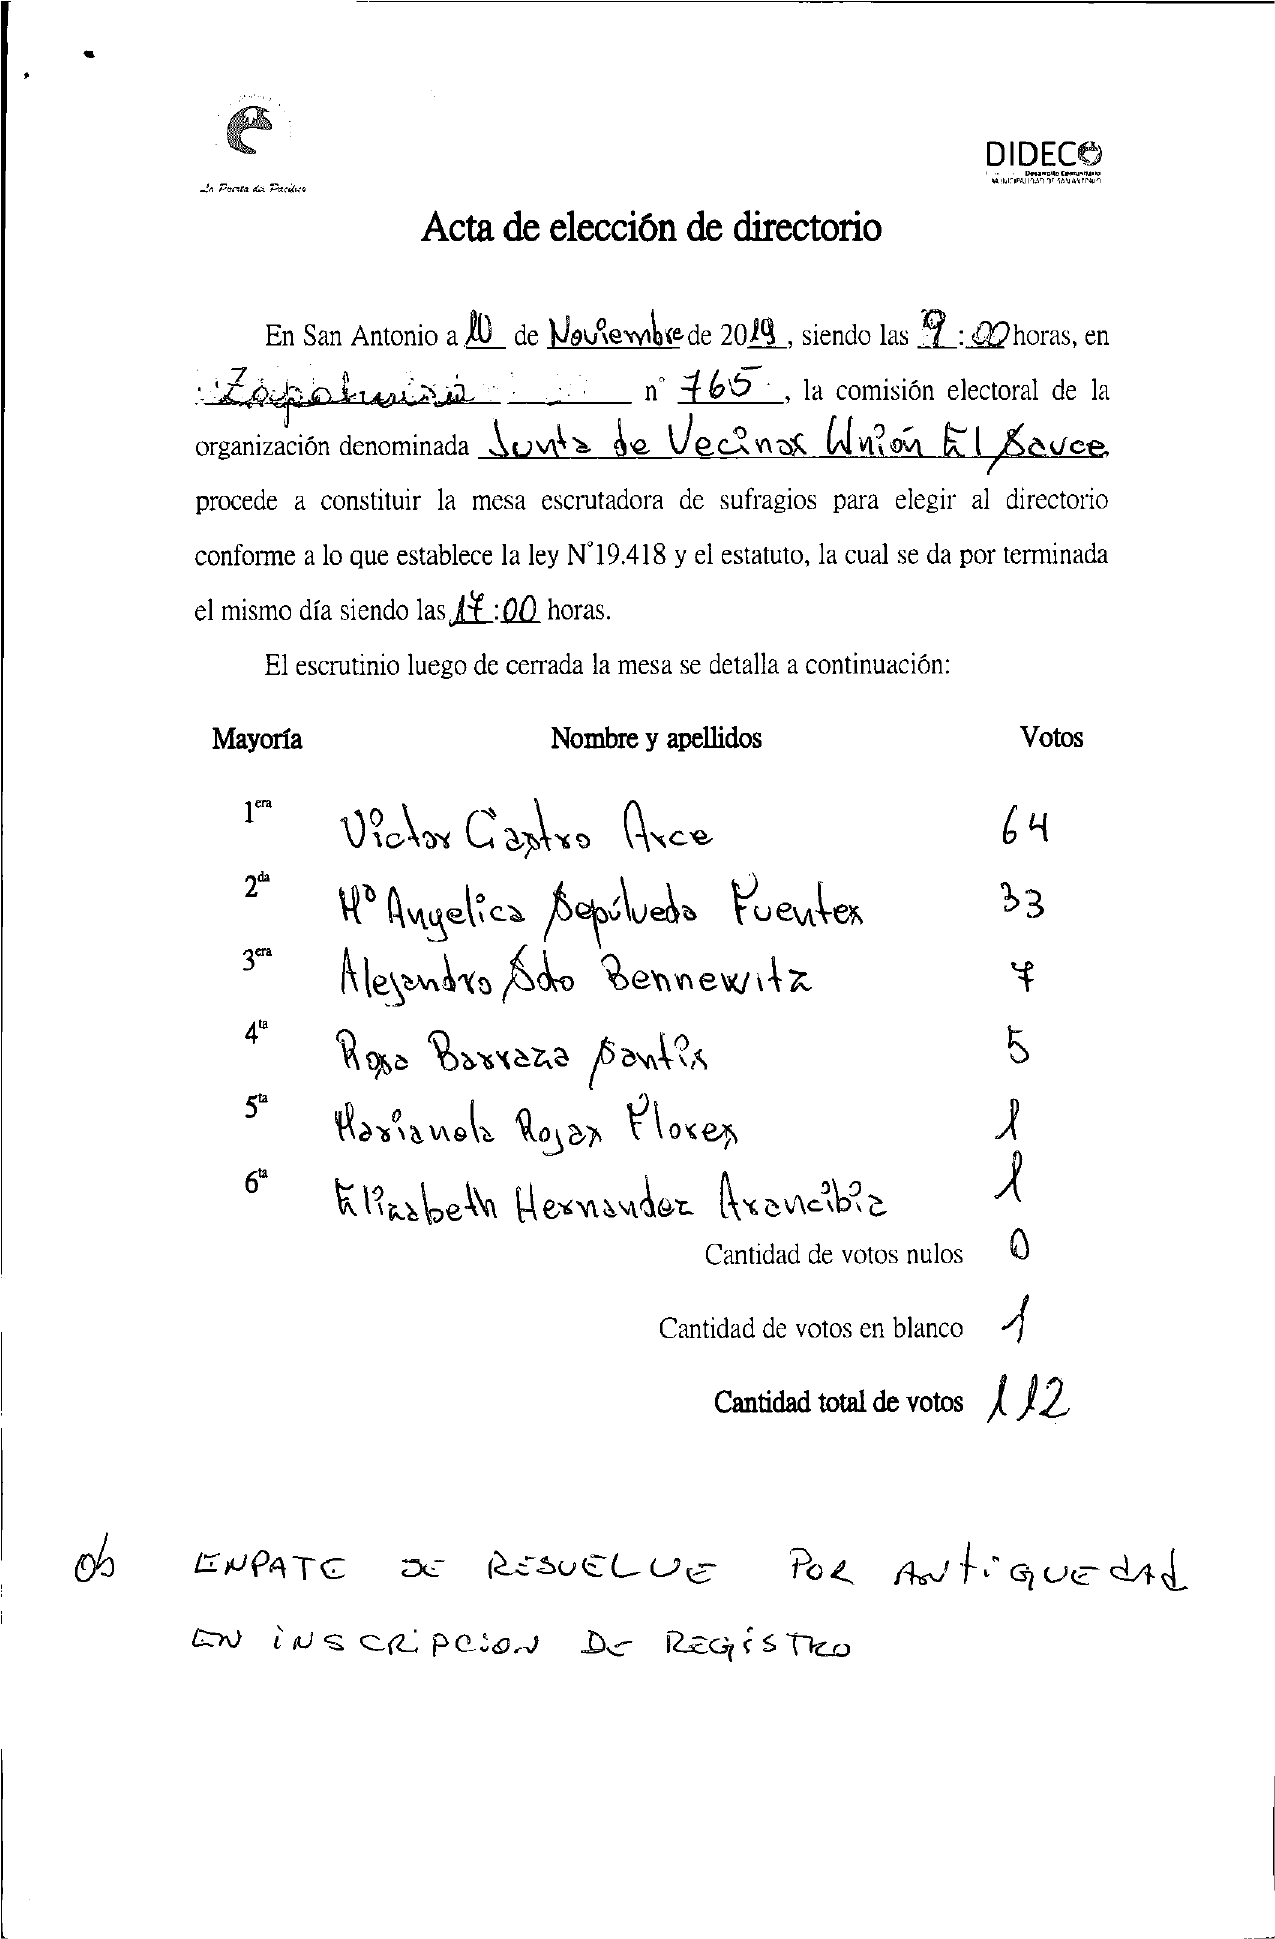 La Puerta del Pacífico
DIDECO
Desarrollo Comunitario
MUNICIPALIDAD DE SAN ANTONIO
Acta de elección de directorio
En San Antonio a 10 de Noviembre de 2019, siendo las 9:00 horas, en
n° 765, la comisión electoral de la
organización denominada Junta de Vecinos Unión El Sauce
procede a constituir la mesa escrutadora de sufragios para elegir al directorio
conforme a lo que establece la ley N°19.418 y el estatuto, la cual se da por terminada
el mismo día siendo las 17:00 horas.
El escrutinio luego de cerrada la mesa se detalla a continuación:
Mayoría Nombre y apellidos Votos
1era Victor Castro Arce 64
2da Mª Angelica Sepúlveda Fuentes 33
3era Alejandro Sdo Bennewitz 7
4ta Rosa Barraza Santis 5
5ta Marianela Rojas Flores 1
6ta Elizabeth Hernandez Arancibia 1
Cantidad de votos nulos 0
Cantidad de votos en blanco 1
Cantidad total de votos 112
ob ENPATE DE RESUELVE POR ANTiGUEdAd
EN iNSCRiPCiON DE REGiSTRO